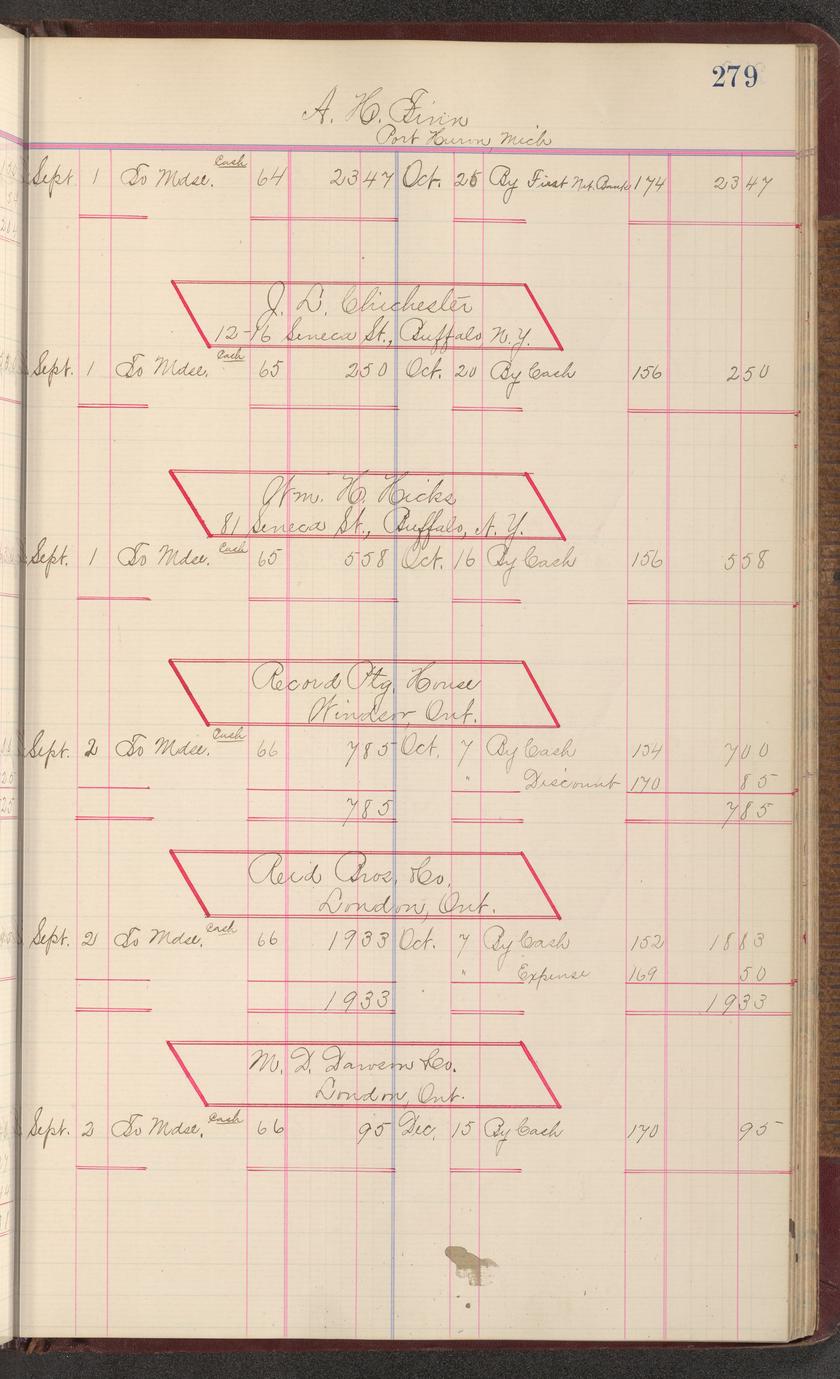 279
A. H. Finn
Port Huron, Mich
Sept. 1 To Mdse. Cash 64 2347 Oct. 25 By First Nat. Bank 174 2347
J. D. Chichester
12-16 Seneca St., Buffalo N.Y.
Sept. 1 To Mdse. Cash 65 250 Oct. 20 By Cash 156 250
Wm. H. Hicks
81 Seneca St., Buffalo, N.Y.
Sept. 1 To Mdse. Cash 65 558 Oct. 16 By Cash 156 558
Record Ptg. House
Windsor, Ont.
Sept. 2 To Mdse. Cash 66 785 Oct. 7 By Cash 154 700
" Discount 170 85
785 785
Reid Bros. & Co.
London, Ont.
Sept. 2 To Mdse. Cash 66 1933 Oct. 7 By Cash 152 1883
" Expense 169 50
1933 1933
M. D. Dawson & Co.
London, Ont.
Sept. 2 To Mdse. Cash 66 95 Dec. 15 By Cash 170 95